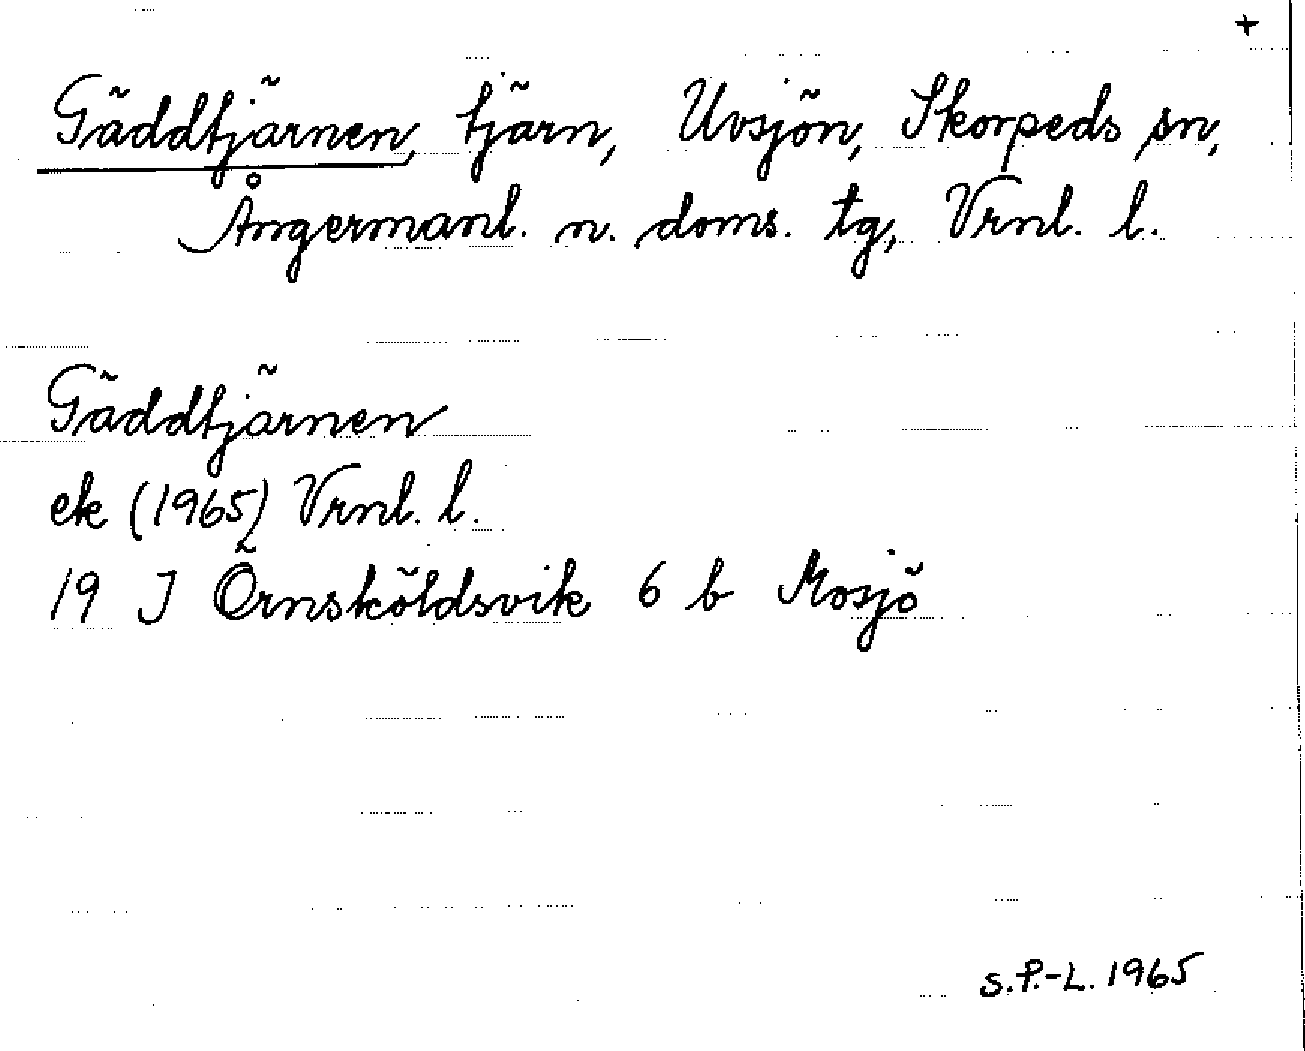 +
Gäddtjärnen, tjärn, Uvsjön, Skorpeds sn,
Ångermanl. n. doms. tg, Vrnl. l.
Gäddtjärnen
ek (1965) Vrnl. l.
19 J Örnsköldsvik 6 b Mosjö
S.P.-L. 1965